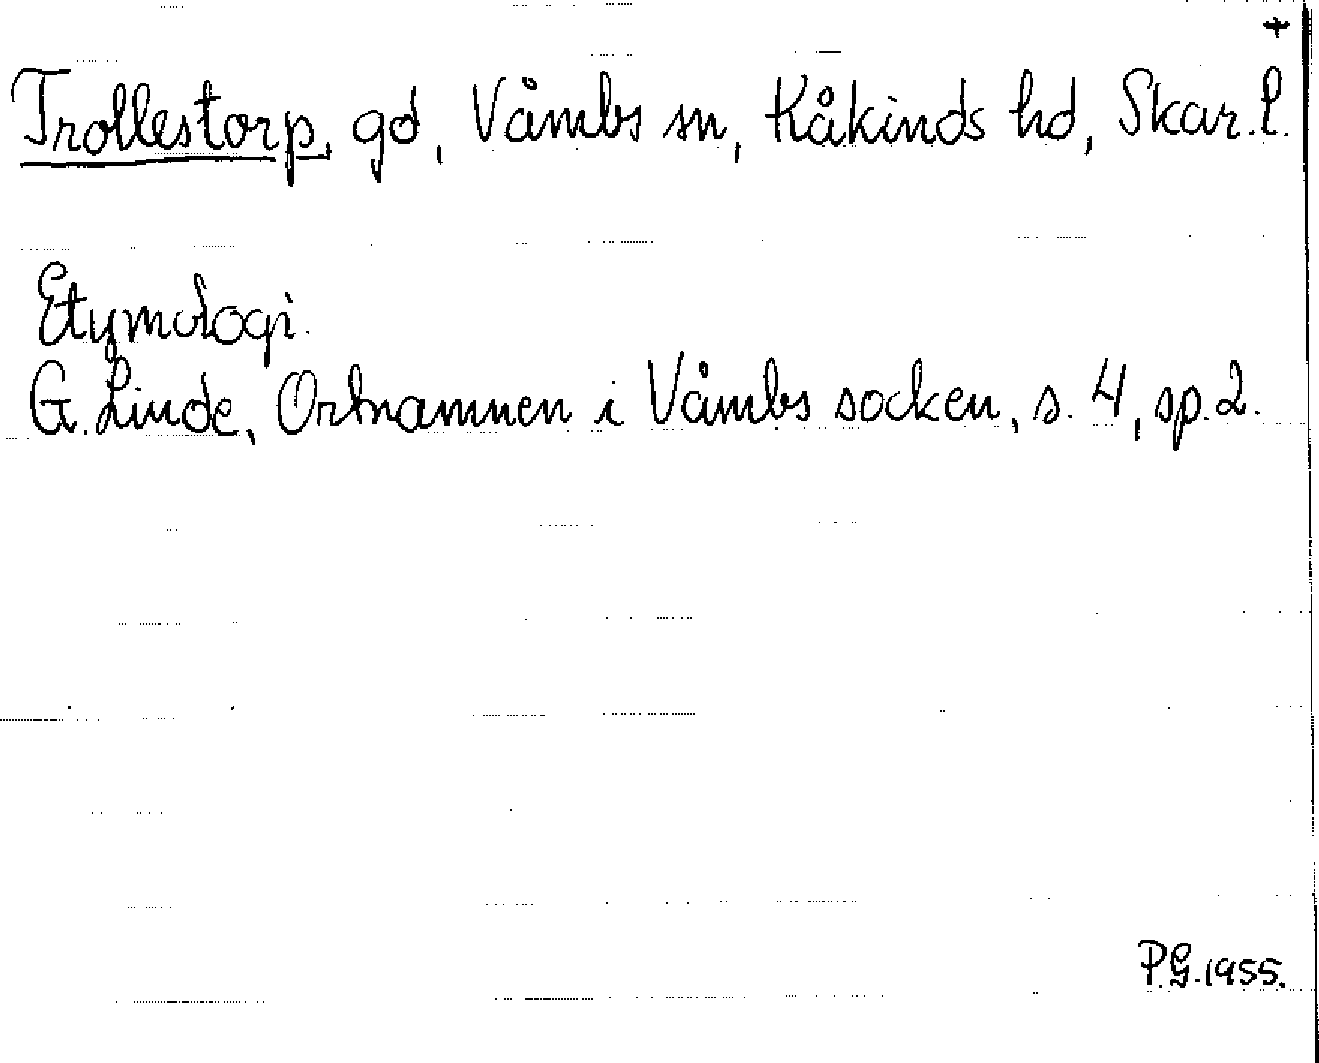 +
Trollestorp, gd, Våmbs sn, Kåkinds hd, Skar. l.
Etymologi.
G. Linde, Ortnamnen i Våmbs socken, s. 4, sp. 2.
P.G. 1955.